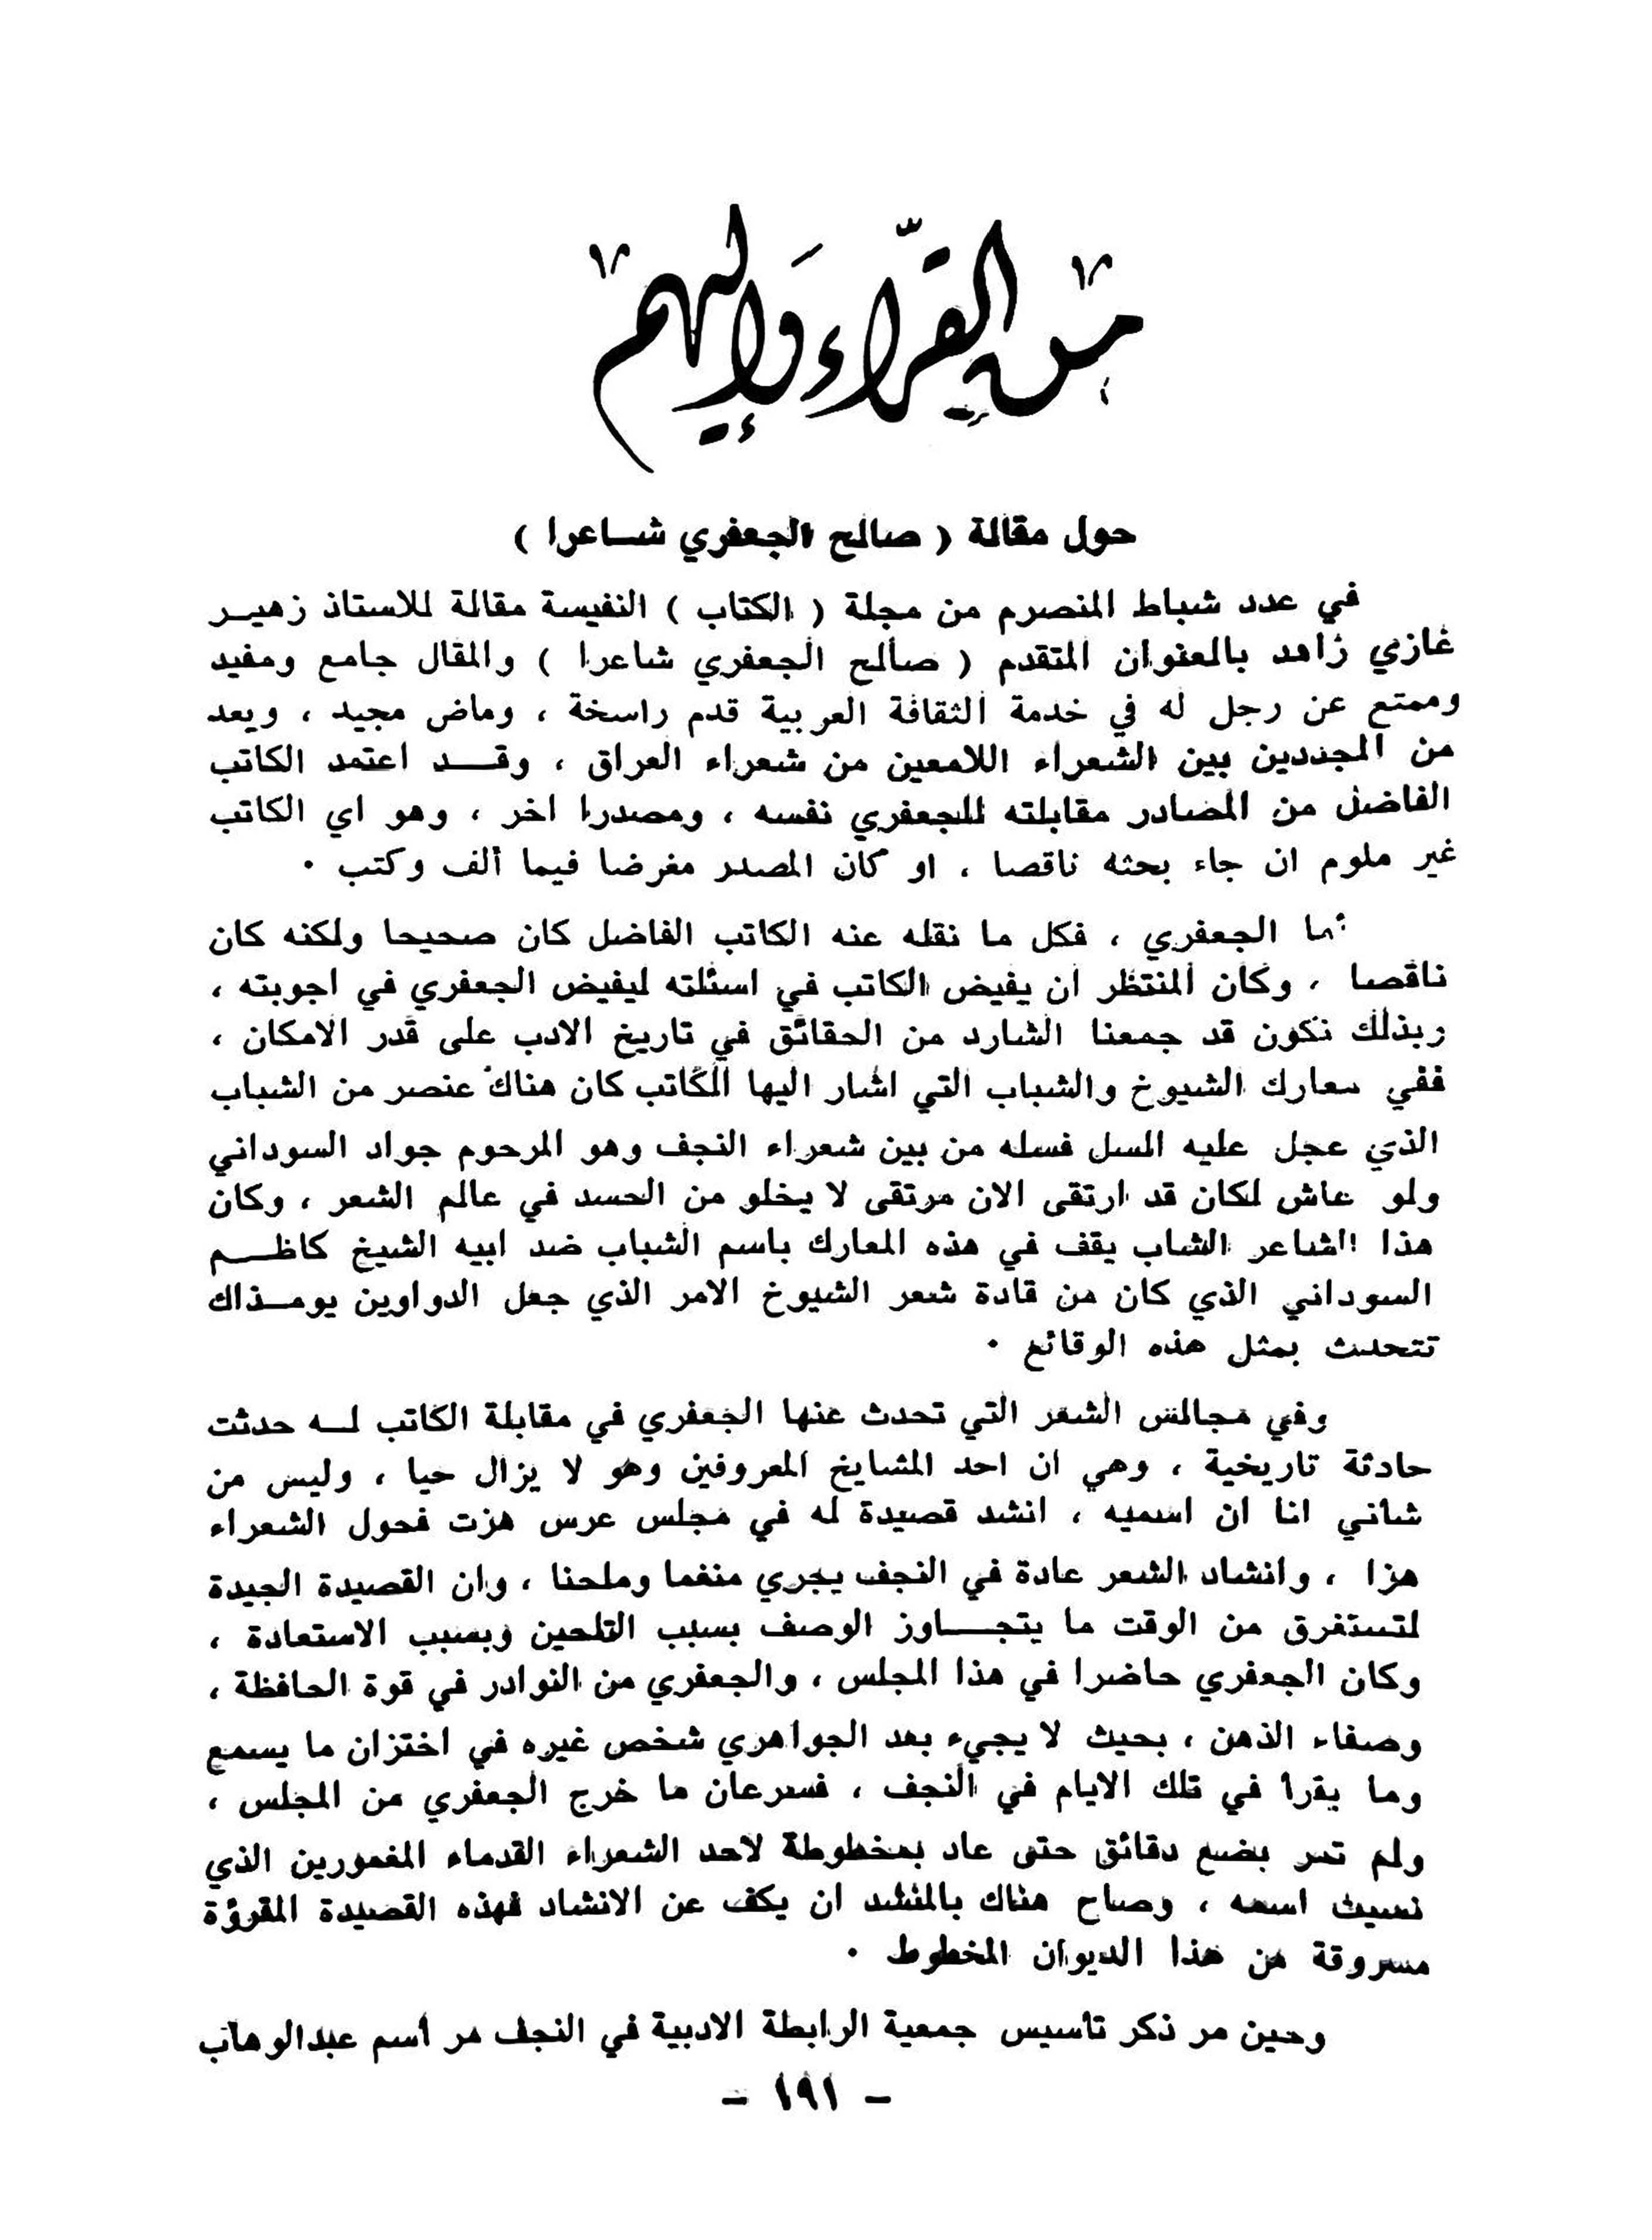 من القرّاء وَإليهم
حول مقالة ( صالح الجعفري شـاعرا )
في عدد شباط المنصرم من مجلة ( الكتاب ) النفيسة مقالة للاستاذ زهيـر
غازي زاهد بالعنوان المتقدم ( صالح الجعفري شاعرا ) والمقال جامع ومفيد
وممتع عن رجل له في خدمة الثقافة العربية قدم راسخة ، وماض مجيد ، ويعد
من المجددين بين الشعراء اللامعين من شعراء العراق ، وقــد اعتمد الكاتب
الفاضل من المصادر مقابلته للجعفري نفسه ، ومصدرا اخر ، وهو اي الكاتب
غير ملوم ان جاء بحثه ناقصا ، او كان المصدر مغرضا فيما ألف وكتب ٠
أما الجعفري ، فكل ما نقله عنه الكاتب الفاضل كان صحيحا ولكنه كان
ناقصا ، وكان المنتظر ان يفيض الكاتب في اسئلته ليفيض الجعفري في اجوبته ،
وبذلك نكون قد جمعنا الشارد من الحقائق في تاريخ الادب على قدر الامكان ،
ففي معارك الشيوخ والشباب التي اشار اليها الكاتب كان هناك عنصر من الشباب
الذي عجل عليه السل فسله من بين شعراء النجف وهو المرحوم جواد السوداني
ولو عاش لكان قد ارتقى الان مرتقى لا يخلو من الحسد في عالم الشعر ، وكان
هذا الشاعر الشاب يقف في هذه المعارك باسم الشباب ضد ابيه الشيخ كاظــم
السوداني الذي كان من قادة شعر الشيوخ الامر الذي جعل الدواوين يومـذاك
تتحدث بمثل هذه الوقائع ٠
وفي مجالس الشعر التي تحدث عنها الجعفري في مقابلة الكاتب لــه حدثت
حادثة تاريخية ، وهي ان احد المشايخ المعروفين وهو لا يزال حيا ، وليس من
شاني انا ان اسميه ، انشد قصيدة له في مجلس عرس هزت فحول الشعراء
هزا ، وانشاد الشعر عادة في النجف يجري منغما وملحنا ، وان القصيدة الجيدة
لتستغرق من الوقت ما يتجــاوز الوصف بسبب التلحين وبسبب الاستعادة ،
وكان الجعفري حاضرا في هذا المجلس ، والجعفري من النوادر في قوة الحافظة ،
وصفاء الذهن ، بحيث لا يجيء بعد الجواهري شخص غيره في اختزان ما يسمع
وما يقرأ في تلك الايام في النجف ، فسرعان ما خرج الجعفري من المجلس ،
ولم تمر بضع دقائق حتى عاد بمخطوطة لاحد الشعراء القدماء المغمورين الذي
نسيت اسمه ، وصاح هناك بالمنشد ان يكف عن الانشاد فهذه القصيدة المقروءة
مسروقة من هذا الديوان المخطوط ٠
وحين مر ذكر تاسيس جمعية الرابطة الادبية في النجف مر أسم عبدالوهاب
- ١٩١ -